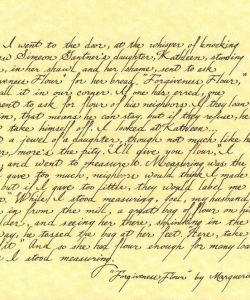 I went to the door, at the whisper of knocking
Simeon Gantner's daughter, Kathleen, standing
in her shawl and her shame, sent to ask
Flour" for her bread. "Forgiveness Flour,"
all it in our corner. If one has erred, one
sent to ask for flour of his neighbors. If they loan
him, that means he can stay, but if they refuse, he
take himself off. I looked at Kathleen.
a jewel of a daughter, though not much like her
more's the pity. "I'll give you flour," I
and went to measure it. Measuring was the
gave too much, neighbors would think I made
but if I gave too little, they would label me
While I stood measuring, Joel, my husband
in from the mill, a great bag of flour on his
lder, and seeing her there, shrinking in the
way, he tossed the bag at her feet. "Here, take
it." And so she had flour enough for many loa
I stood measuring.
"Forgiveness Flour" by Marguer